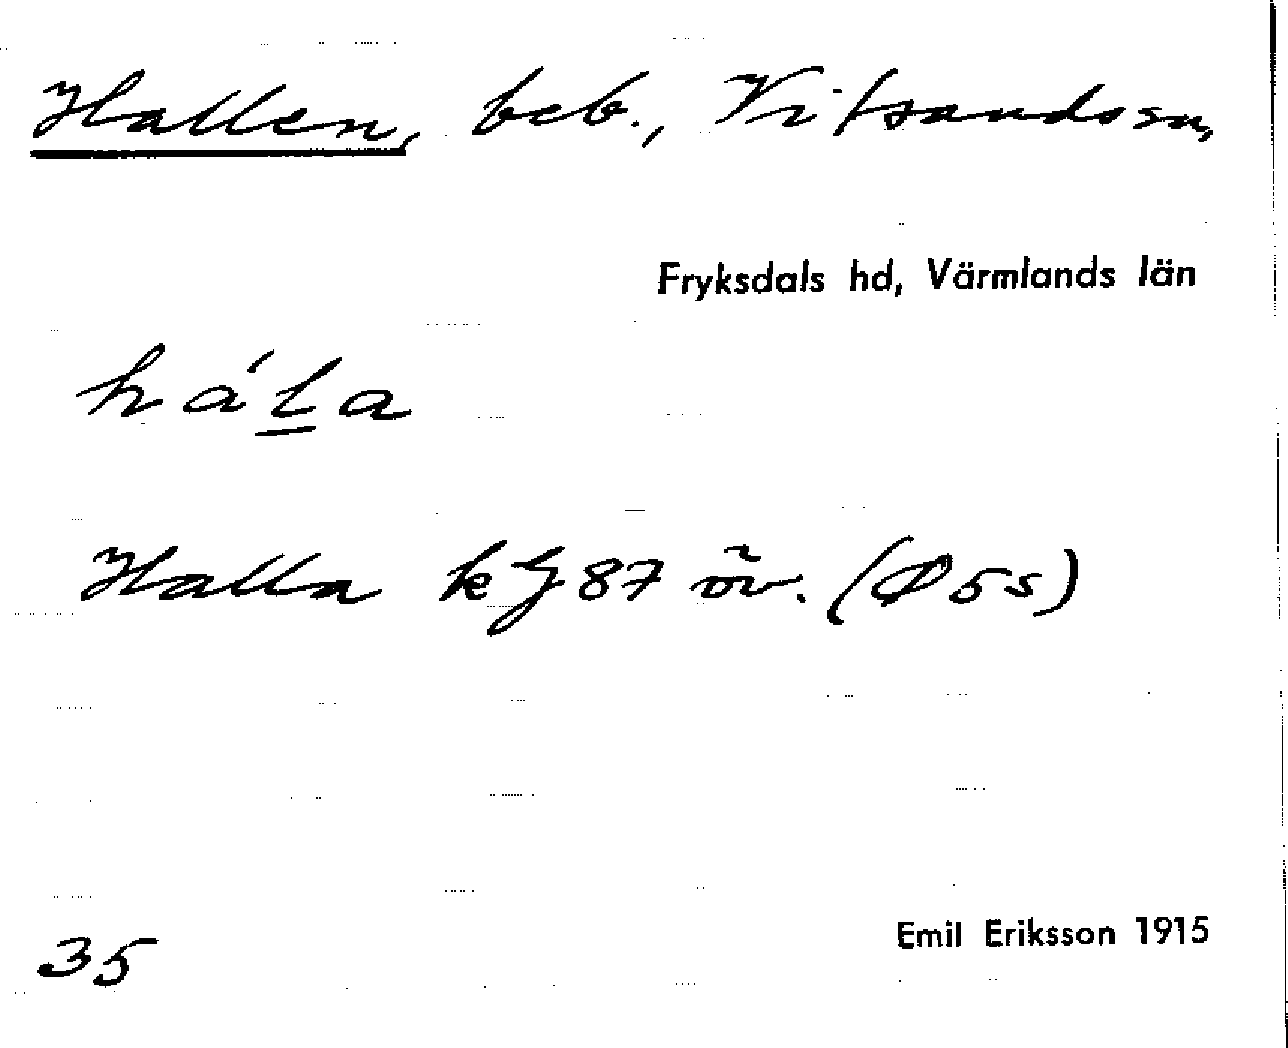 Hallen, beb., Vitsands sn,
Fryksdals hd, Värmlands län
hál̲a
Halla kJ 87 öv. (Ø 5 s)
35
Emil Eriksson 1915